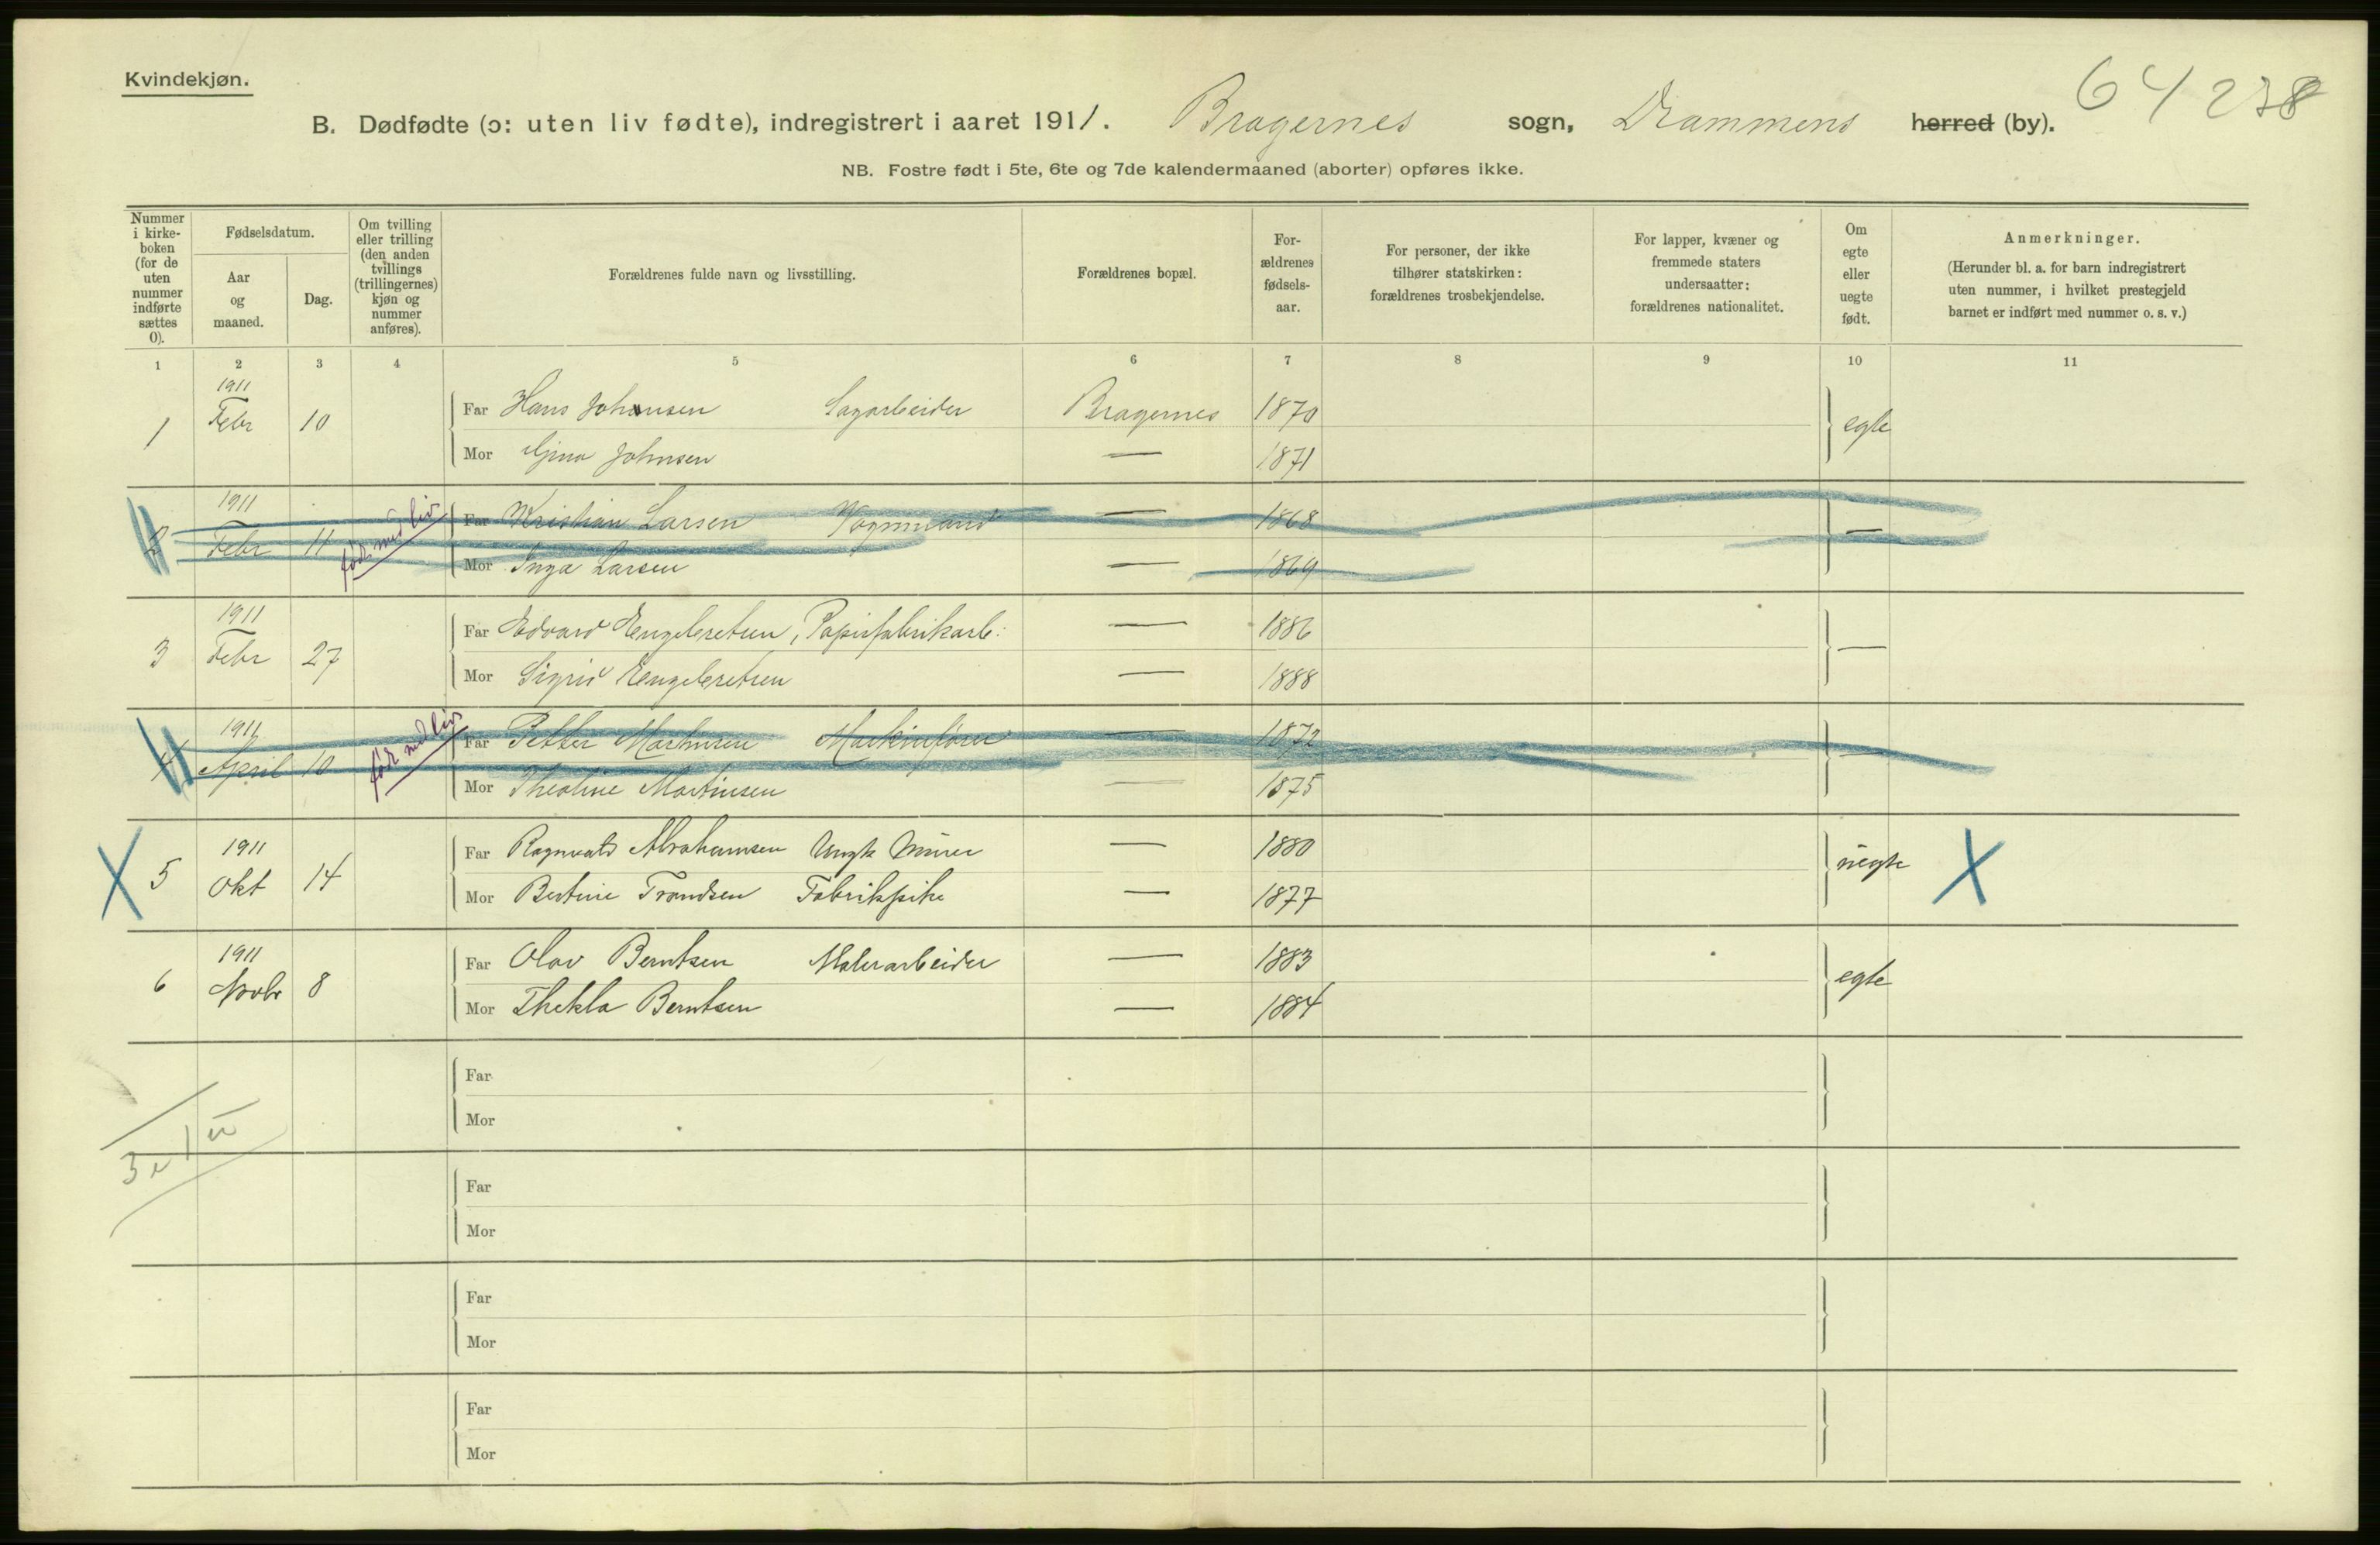 Kvindekjøn.
B. Dødfødte (ɔ: uten liv fødte), indregistrert i aaret 1911. Bragernes sogn, Drammens herred (by). 64
NB. Fostre født i 5te, 6te og 7de kalendermaaned (aborter) opføres ikke.
Nummer i kirke-boken (for de uten nummer indførte sættes 0).
Fødselsdatum.
Aar og maaned.
Dag.
Om tvilling eller trilling (den anden tvillings (trillingernes) kjøn og nummer anføres).
Forældrenes fulde navn og livsstilling.
Forældrenes bopæl.
For-ældrenes fødsels-aar.
For personer, der ikke tilhører statskirken: forældrenes trosbekjendelse.
For lapper, kvæner og fremmede staters undersaatter: forældrenes nationalitet.
Om egte eller uegte født.
Anmerkninger.
(Herunder bl. a. for barn indregistrert uten nummer, i hvilket prestegjeld barnet er indført med nummer o. s. v.)
1 2 3 4 5 6 7 8 9 10 11
1 1911 Febr 10 Far Hans Johnsen Sagarbeider Bragernes 1870 egte
Mor Gina Johnsen — 1871
2 1911 Febr 11 født med liv Far Kristian Larsen Vognmand — 1868 —
Mor Inga Larsen — 1869
3 1911 Febr 27 Far Edvard Engebretsen, Papirfabrikarb. — 1886 —
Mor Sigrid Engebretsen — 1888
4 1911 April 10 født med liv Far Petter Martinsen Maskinfører — 1872 —
Mor Theoline Martinsen — 1875
X 5 1911 Okt 14 Far Ragnvald Abrahamsen Ungk Murer — 1880 uegte X
Mor Bertine Trondsen Fabrikpike — 1877
6 1911 Novbr 8 Far Olav Berntsen Malerarbeider — 1883 egte
Mor Thekla Berntsen — 1884
Far
Mor
Far
Mor
Far
Mor
Far
Mor